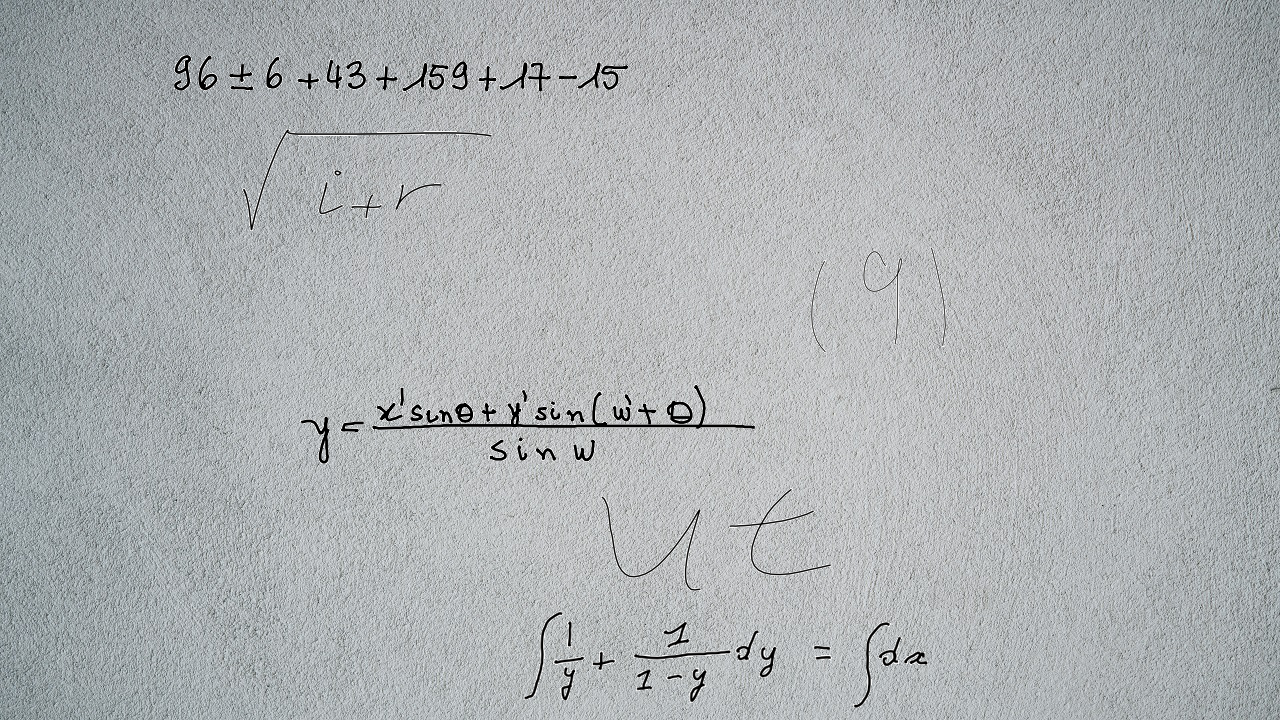 96 ± 6 + 43 + 159 + 17 - 15
√(i + r)
(9)
y = (x' sin θ + y' sin(w + θ)) / (sin w)
u t
∫ 1/y + 1/(1 - y) dy = ∫ dx